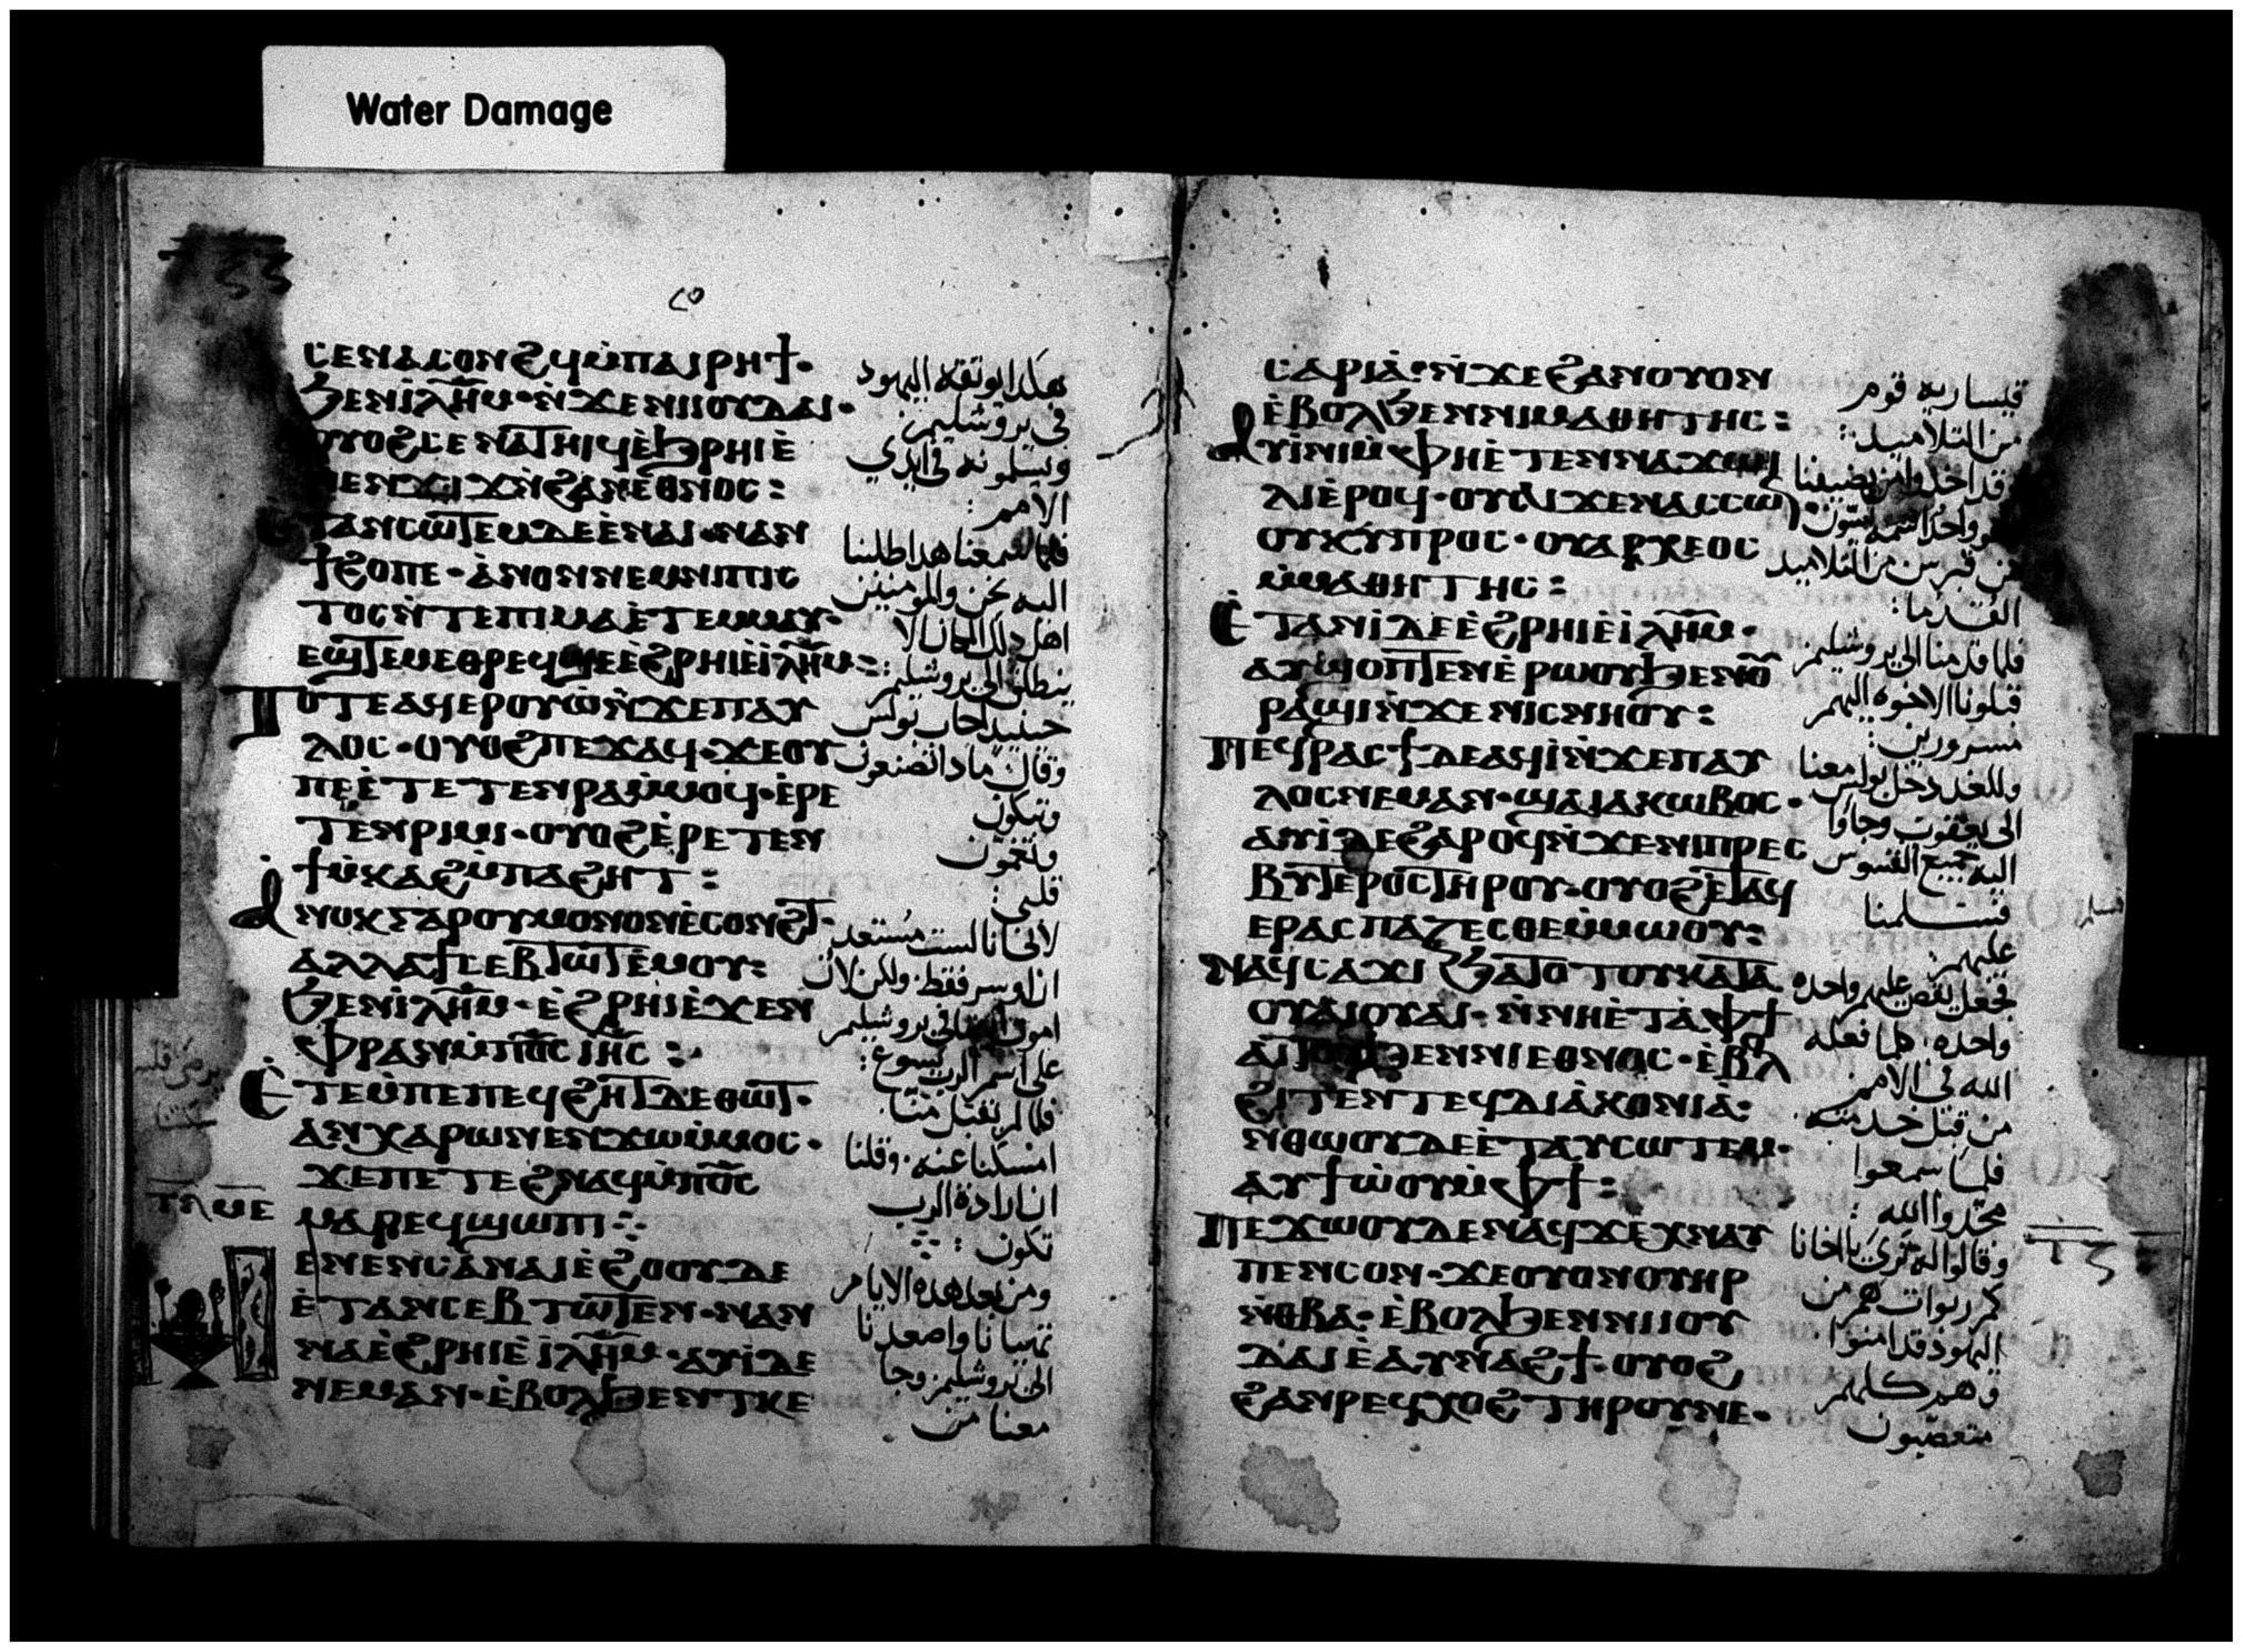 Water Damage
٢٥
ⲥⲉⲛⲁⲥⲟⲛϩϥⲙ̀ⲡⲁⲓⲣⲏϯ·
ϧⲉⲛⲓ̀ⲗ̅ⲏ̅ⲙ̅·ⲛ̀ϫⲉⲛⲓⲓⲟⲩⲇⲁⲓ·
ⲟⲩⲟϩⲥⲉⲛⲁⲧⲏⲓϥⲉ̀ϧⲣⲏⲓⲉ̀
ⲛⲉⲛϫⲓϫⲛ̀ϩⲁⲛⲉⲑⲛⲟⲥ:
ⲉⲧⲁⲛⲥⲱⲧⲉⲙⲇⲉⲉ̀ⲛⲁⲓ·ⲛⲁⲛ
ϯϩⲟⲡⲉ·ⲁ̀ⲛⲟⲛⲛⲉⲙⲛⲓⲡⲓⲥ
ⲧⲟⲥⲛ̀ⲧⲉⲡⲓⲙⲁⲉ̀ⲧⲉⲙⲙⲁⲩ·
ⲉϣⲧⲉⲙⲉⲑⲣⲉϥϣⲉⲉ̀ϩⲣⲏⲓⲉ̀ⲓ̀ⲗ̅ⲏ̅ⲙ̅:
ⲧⲟⲧⲉⲁϥⲉⲣⲟⲩⲱ̀ⲛ̀ϫⲉⲡⲁⲩ
ⲗⲟⲥ·ⲟⲩⲟϩⲡⲉϫⲁϥ·ϫⲉⲟⲩ
ⲡⲉⲉ̀ⲧⲉⲧⲉⲛⲣⲁⲙ̀ⲙⲟϥ·ⲉ̀ⲣⲉ
ⲧⲉⲛⲣⲓⲙⲓ·ⲟⲩⲟϩⲉ̀ⲣⲉⲧⲉⲛ
ϯⲙ̀ⲕⲁϩⲙ̀ⲡⲁϩⲏⲧ:
ⲁⲛⲟⲕⲅⲁⲣⲟⲩⲙⲟⲛⲟⲛⲉ̀ⲥⲟⲛϩⲧ·
ⲁⲗⲗⲁϯⲥⲉⲃⲧⲱⲧⲉ̀ⲙⲟⲩ:
ϧⲉⲛⲓ̀ⲗ̅ⲏ̅ⲙ̅·ⲉ̀ϩⲣⲏⲓⲉ̀ϫⲉⲛ
ⲫⲣⲁⲛⲙ̀ⲡⲟ̅ⲥ̅ⲓⲏ̅ⲥ̅:
ⲉ̀ⲧⲉⲙ̀ⲡⲉⲡⲉϥϩⲏⲧⲇⲉⲑⲱⲧ·
ⲁⲛⲭⲁⲣⲱⲛⲉⲛϫⲱⲙ̀ⲙⲟⲥ·
ϫⲉⲡⲉⲧⲉϩⲛⲁϥⲙ̀ⲡⲟ̅ⲥ̅
ⲙⲁⲣⲉϥϣⲱⲡⲓ⁘
ⲉⲛⲉⲛⲥⲁⲛⲁⲓⲉ̀ϩⲟⲟⲩⲇⲉ
ⲉ̀ⲧⲁⲛⲥⲉⲃⲧⲱⲧⲉⲛ·ⲛⲁⲛ
ⲛⲁⲉ̀ϩⲣⲏⲓⲉ̀ⲓ̀ⲗ̅ⲏ̅ⲙ̅·ⲁⲩⲓ̀ⲇⲉ
ⲛⲉⲙⲁⲛ·ⲉ̀ⲃⲟⲗϧⲉⲛⲧⲕⲉ
هكذا يوثقه اليهود
في يروشليم
ويسلمونه في ايدي
الامم:
فلما سمعنا هذا طلبنا
اليه نحن والمومنين
اهل ذلك المكان لا
ينطلق الى يروشليم:
حينيذ اجاب بولس
وقال ماذا تصنعون
وتبكون
وتغمون
قلبي:
لاني انا لست مستعد
ان اوسر فقط. ولكن لان
اموت ايضا في يروشليم
على اسم الرب يسوع:
فلما لم يقبل منا.
امسكنا عنه. وقلنا
ان ارادة الرب
تكون:
ومن بعد هذه الايام
تهيانا واصعدنا
الى يروشليم وجا
معنا من
ⲥⲁⲣⲓⲁ̀·ⲛ̀ϫⲉϩⲁⲛⲟⲩⲟⲛ
ⲉ̀ⲃⲟⲗϧⲉⲛⲛⲓⲙⲁⲑⲏⲧⲏⲥ:
ⲁⲩⲓ̀ⲛⲓⲙ̀ⲫⲏⲉ̀ⲧⲉⲛⲛⲁϫⲱⲓ
ⲗⲓⲉ̀ⲣⲟϥ·ⲟⲩⲁⲓϫⲉⲛⲁⲥⲥⲱⲛ·
ⲟⲩⲕⲩⲡⲣⲟⲥ·ⲟⲩⲁⲣⲭⲉⲟⲥ
ⲙ̀ⲙⲁⲑⲏⲧⲏⲥ:
ⲉ̀ⲧⲁⲛⲓ̀ⲇⲉⲉ̀ϩⲣⲏⲓⲉ̀ⲓ̀ⲗ̅ⲏ̅ⲙ̅·
ⲁⲩϣⲟⲡⲧⲉⲛⲉ̀ⲣⲱⲟⲩϧⲉⲛⲟⲩ
ⲣⲁϣⲓⲛ̀ϫⲉⲛⲓⲥⲛⲏⲟⲩ:
ⲡⲉϥⲣⲁⲥϯⲇⲉⲁϥⲓ̀ⲛ̀ϫⲉⲡⲁⲩ
ⲗⲟⲥⲛⲉⲙⲁⲛ·ϣⲁⲓⲁⲕⲱⲃⲟⲥ·
ⲁⲩⲓ̀ⲇⲉϩⲁⲣⲟϥⲛ̀ϫⲉⲛⲓⲡⲣⲉⲥ
ⲃⲩⲧⲉⲣⲟⲥⲧⲏⲣⲟⲩ·ⲟⲩⲟϩⲉ̀ⲧⲁϥ
ⲉⲣⲁⲥⲡⲁⲍⲉⲥⲑⲉⲙ̀ⲙⲱⲟⲩ:
ⲛⲁϥⲥⲁϫⲓϧⲁⲧⲟⲧⲟⲩⲕⲁⲧⲁ
ⲟⲩⲁⲓⲟⲩⲁⲓ·ⲛ̀ⲛⲏⲉ̀ⲧⲁ̀ⲫϯ
ⲁⲓⲧⲟⲩϧⲉⲛⲛⲓⲉⲑⲛⲟⲥ·ⲉ̀ⲃⲗ
ϩⲓⲧⲉⲛⲧⲉϥⲇⲓⲁ̀ⲕⲟⲛⲓⲁ̀:
ⲛⲑⲱⲟⲩⲇⲉⲉ̀ⲧⲁⲩⲥⲱⲧⲉⲙ·
ⲁⲩϯⲱ̀ⲟⲩⲙ̀ⲫϯ:
ⲡⲉϫⲱⲟⲩⲇⲉⲛⲁϥϫⲉⲭⲛⲁⲩ
ⲡⲉⲛⲥⲟⲛ·ϫⲉⲟⲩⲟⲛⲟⲩⲏⲣ
ⲛ̀ⲑⲃⲁ·ⲉ̀ⲃⲟⲗϧⲉⲛⲛⲓⲓⲟⲩ
ⲇⲁⲓⲉ̀ⲁⲩⲛⲁϩϯ·ⲟⲩⲟϩ
ϩⲁⲛⲣⲉϥⲭⲟϩⲧⲏⲣⲟⲩⲛⲉ·
قيساريه قوم
من التلاميذ:
قد اخذوا من يضيفنا
واحد اسمه اسون.
من قبرس من التلاميذ
القدما:
فلما قدمنا الى يروشليم
قبلونا الاخوه اليهم
مسرورين:
وللغد دخل بولس معنا
الى يعقوب وجاوا
اليه جميع القسوس
فتسلمنا
عليهم:
فجعل يقص عليهم واحده
واحده. كما فعله
الله في الامم
من قبل خدمته
فلما سمعوا
مجدوا الله:
وقالوا له ترى يا اخانا
كم ربوات هم من
اليهود قد امنوا
وهم كلهم
متعصبون